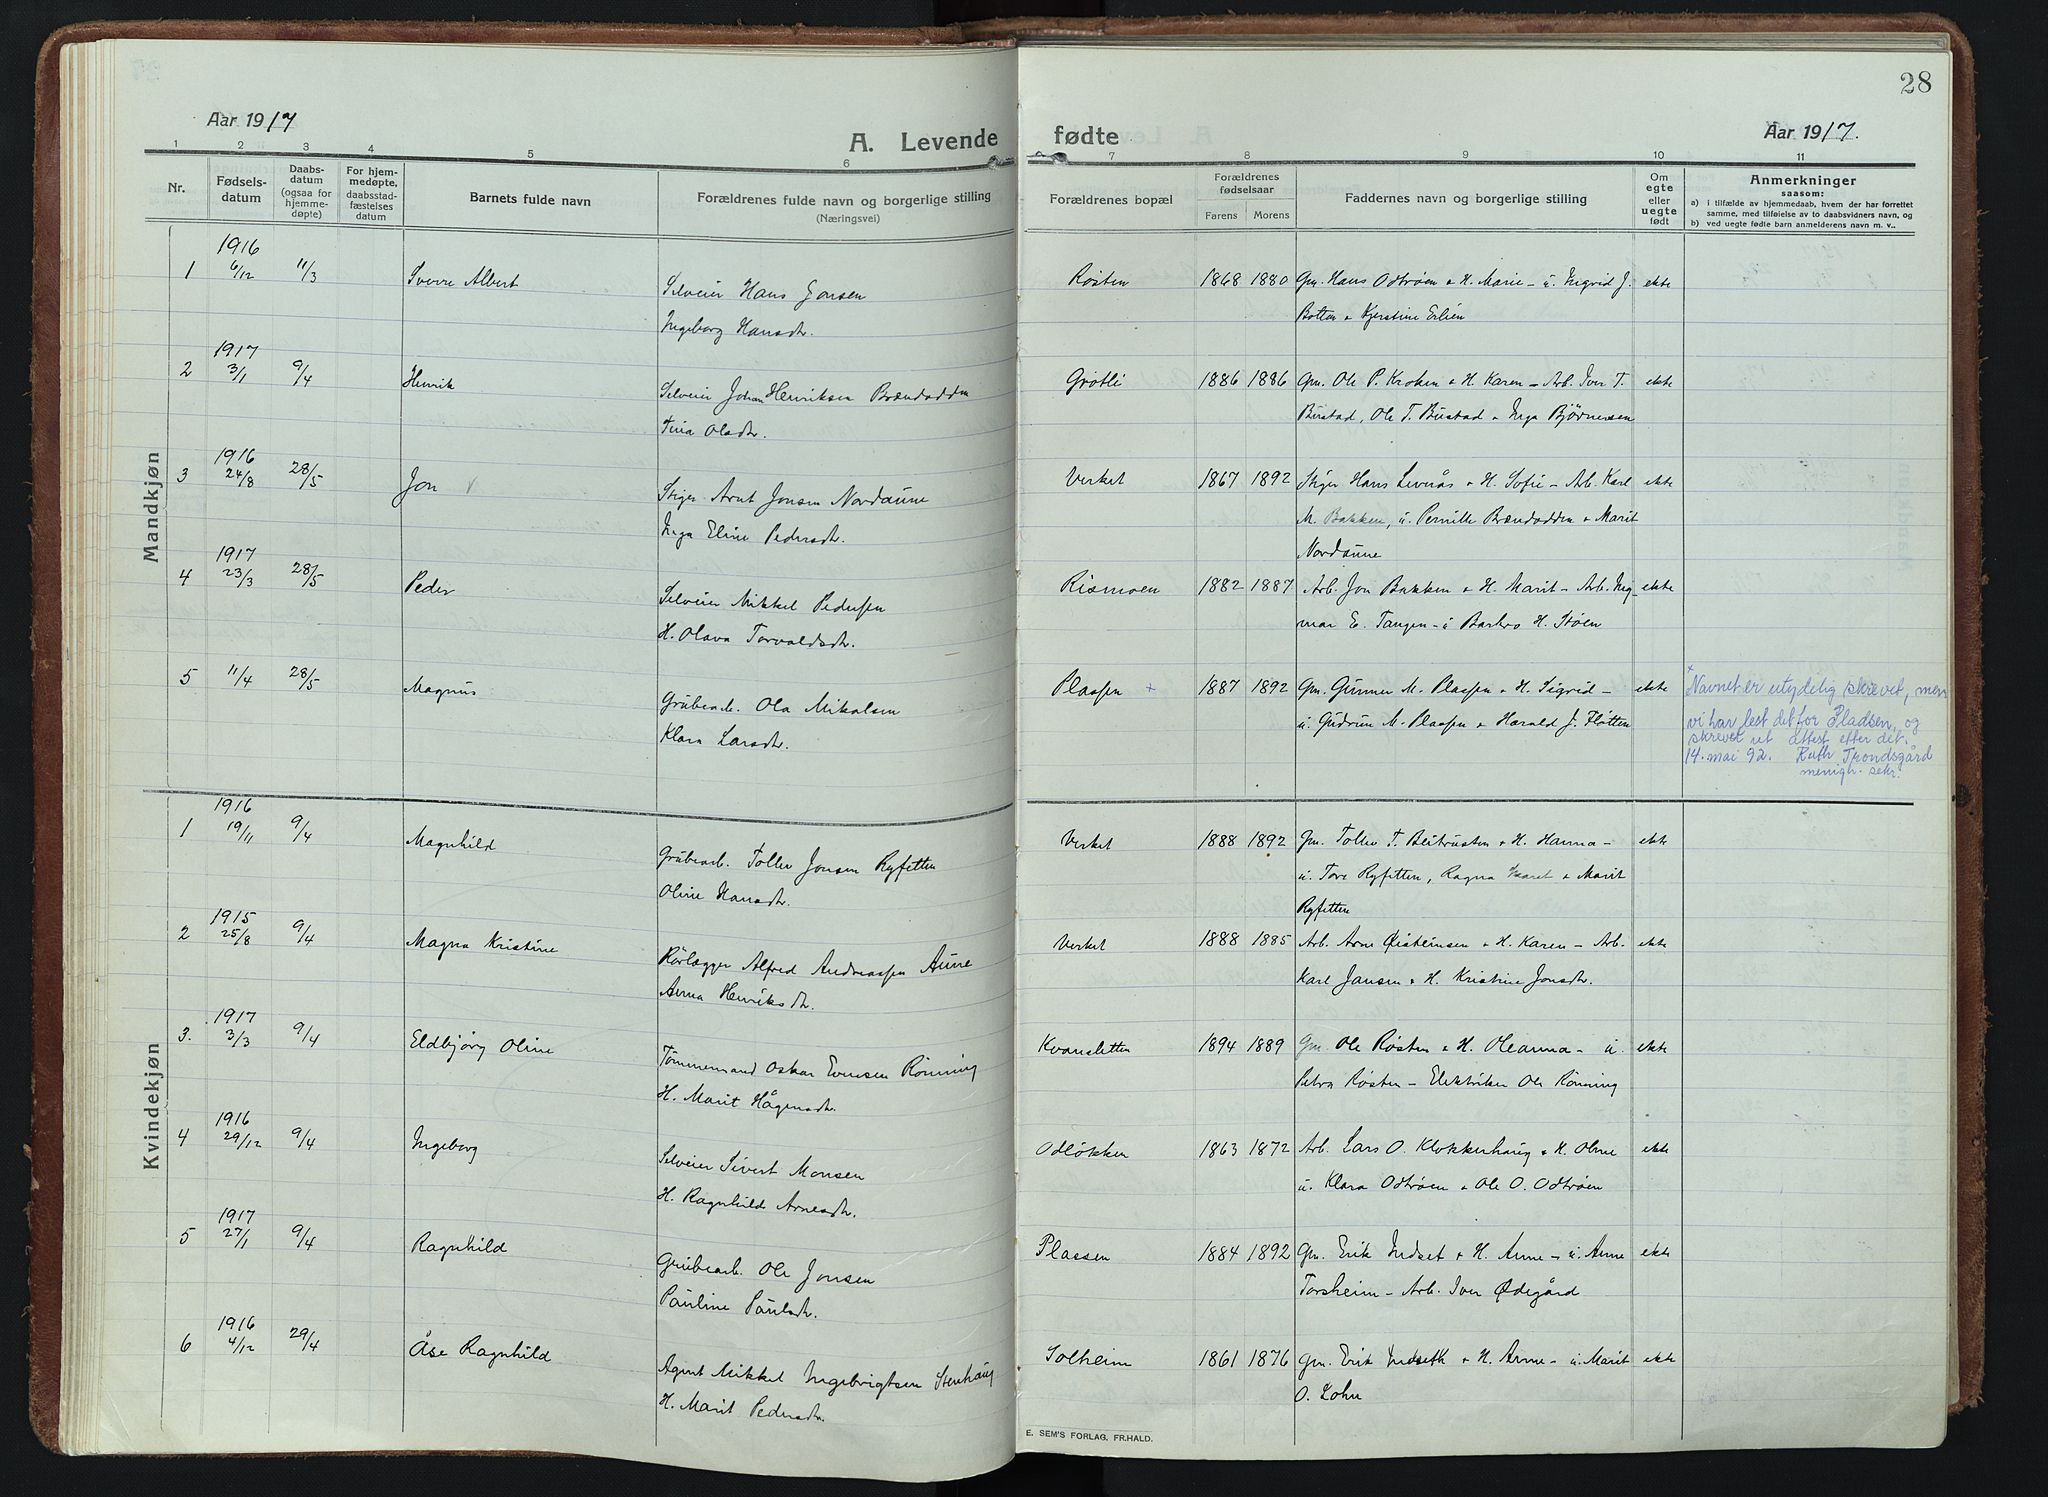 28
Aar 1917
A. Levende fødte
Aar 1917.
1 2 3 4 5 6 7 8 9 10 11
Nr.
Fødsels-
datum
Daabs-
datum
(ogsaa for
hjemme-
døpte)
For hjem-
medøpte,
daabsstad-
fæstelses
datum
Barnets fulde navn
Forældrenes fulde navn og borgerlige stilling
(Næringsvei)
Forældrenes bopæl
Forældrenes
fødselsaar
Farens Morens
Faddernes navn og borgerlige stilling
Om
egte
eller
uegte
født
Anmerkninger
saasom:
a) i tilfælde av hjemmedaab, hvem der har forrettet
samme, med tilføielse av to daabsvidners navn, og
b) ved uegte fødte barn anmelderens navn m. v..
Mandkjøn
1916
1 6/12 11/3 Sverre Albert Selveier Hans Jonsen Røsten 1868 1880 Gm. Hans Odtrøen & H. Marie – u. Ingrid J. ekte
Ingeborg Hansdtr. Botten & Kjerstine Erlien
1917
2 3/1 9/4 Henrik Selveier Johan Henriksen Brændadden Grøtli 1886 1886 Gm. Ole P. Kroken & H. Karen – Arb. Iver T. ekte
Olsdtr. Bustad, Ole T. Bustad & Inga Bjørnersen
1916
3 24/8 28/5 Jon Stiger Arnt Jonsen Nordaune Verket 1867 1892 Stiger Hans Leverås & H. Sofie – Arb. Karl ekte
Inga Eline Pedersdtr. M. Bakken, u. Pernille Brændadden & Marit
Nordaune
1917
4 23/3 28/5 Peder Selveier Mikkel Pedersen Rismoen 1882 1887 Arb. Jon Bakken & H. Marit – Arb. Ing- ekte
H. Olava Torvaldsdtr. mar E. Tangen – u Barbro H. Støen
5 11/4 28/5 Magnus Grubearb. Ola Mikalsen Plassen + 1887 1892 Gm. Gunnar M. Plassen & H. Sigrid – ekte
Klara Larsdtr. u. Gudrun M. Plassen & Harald J. Fløtten
+ Navnet er utydelig skrevet, men
vi har lest det for Pladsen, og
skrevet ut attest efter det.
14. mai 92. Ruth Trondsgård
menigh. sekr.
Kvindekjøn
1916
1 19/11 9/4 Magnhild Grubearb. Tollev Jonsen Ryfetten Verket 1888 1892 Gm. Tollev T. & H. Hanna – ekte
Oline Hansdtr. u. Tore Ryfetten, Ragna & Marit
Ryfetten
1915
2 25/8 9/4 Magna Kristine Rørlægger Alfred Andreassen Aune Verket 1888 1885 Arb. Arne Øisteinsen & H. Karen – Arb. ekte
Anna Henriksdtr. Karl Jansen & H. Kristine Jonsdtr.
1917
3. 3/3 9/4 Eldbjørg Oline Tømmermand Oskar Evensen Rønning Kvansletten 1894 1889 Gm. Ole Røsten & H. Oleanna – u. ekte
H. Marit Hågensdtr. Petra Røsten – Elektriker Ole Rønning
1916
4 29/12 9/4 Ingeborg Selveier Sivert Monsen Odløkken 1863 1872 Arb. Lars O. Klokkerhaug & H. Oline ekte
H. Ragnhild Arnesdtr. u. Klara Odtrøen & Ole O. Odtrøen
1917
5 27/1 9/4 Ragnhild Grubearb. Ole Jonsen Plassen 1884 1892 Gm. Erik Indset & H. Anne – u. Anne ekte
Pauline Paulsdtr. Torsheim – Arb. Iver Ødegård
1916
6 4/12 29/4 Åse Ragnhild Agent Mikkel Ingebrigtsen Stenhaug Solheim 1861 1876 Gm. Erik Indseth & H. Anne – u. Marit ekte
H. Marit Pedersdtr. O. Lohn
E. SEM'S FORLAG, FR.HALD.